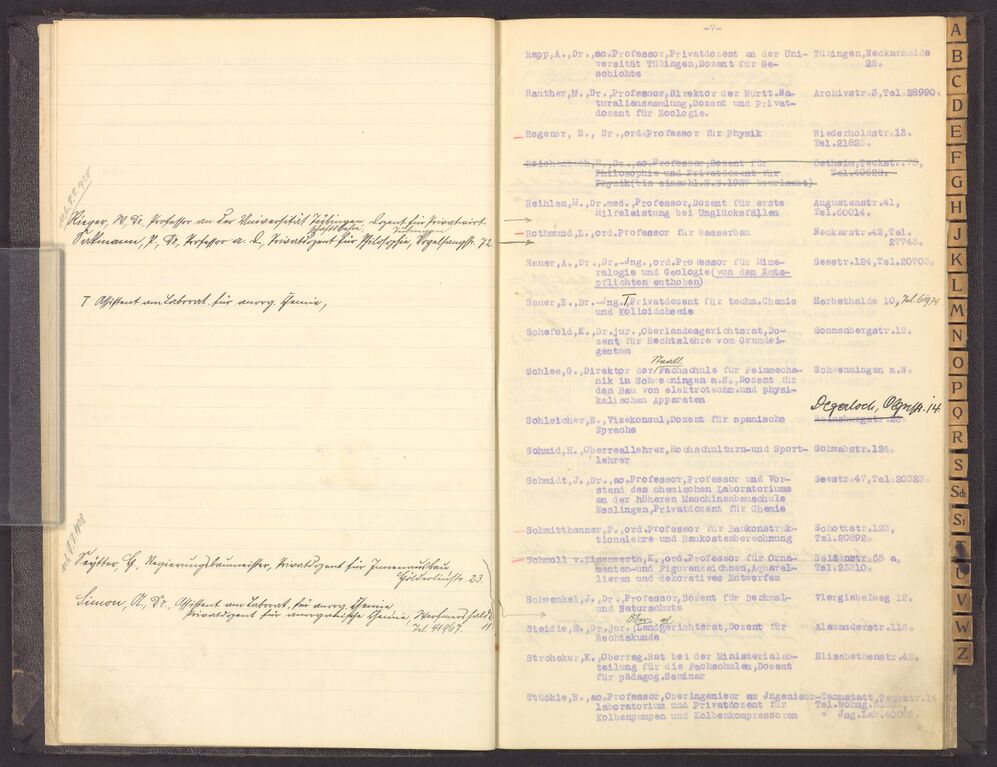 Rieger, W. Dr. Professor an der Universität Tübingen, Dozent für Privatwirt-
schaftslehre, Tübingen
Sakmann, P., Dr., Professor a. D., Privatdozent für Philosophie, Vogelsangstr. 72
T Assistent am Laborat. für anorg. Chemie,
Seytter, E., Regierungsbaumeister, Privatdozent für Innenausbau,
Hölderlinstr. 23
Simon, A., Dr., Assistent am Laborat. für anorg. Chemie
Privatdozent für anorganische Chemie,
Tel. 41967.
-7-
Rapp,A.,Dr.,ao.Professor,Privatdozent an der Uni- Tübingen,Neckarhalde
versität Tübingen,Dozent für Ge- 25.
schichte
Rauther,M.,Dr.,Professor,Direktor der Württ.Na- Archivstr.3,Tel.28990.
turaliensammlung,Dozent und Privat-
dozent für Zoologie.
Regener, E., Dr.,ord.Professor für Physik Wiederholdstr.13.
Tel.21823.
Reichenbach,H.,Dr.,ao.Professor,Dozent für Ostheim,Teckstr.75,
Philosophie und Privatdozent für Tel.40625.
Physik(bis einschl.S.S.1927 beurlaubt)
Reihlen,M.,Dr.med.,Professor,Dozent für erste Augustenstr.41,
Hilfeleistung bei Unglücksfällen Tel.60014.
Rothmund,L.,ord.Professor für Wasserbau Neckarstr.42,Tel.
27743.
Sauer,A.,Dr.,Dr.-Jng.,ord.Professor für Mine- Seestr.124,Tel.20703.
ralogie und Geologie(von den Amts-
pflichten enthoben)
Sauer,E.,Dr.-Jng.T,Privatdozent für techn.Chemie Herbsthalde 10,
und Kolloidchemie
Schefold,K.,Dr.jur.,Oberlandesgerichtsrat,Do- Sonnenbergstr.12.
zent für Rechtslehre vom Grundei-
gentum
Staatl.
Schlee,G.,Direktor der Fachschule für Feinmecha- Schwenningen a.N.
nik in Schwenningen a.N.,Dozent für
den Bau von elektrotechn.und physi-
kalischen Apparaten
Degerloch, Olgastr. 14.
Schleicher,R.,Vizekonsul,Dozent für spanische
Sprache
Schmid,H.,Oberreallehrer,Hochschulturn-und Sport- Schwabstr.124.
lehrer
Schmidt,J.,Dr.,ao.Professor,Professor und Vor- Seestr.47,Tel.20323.
stand des chemischen Laboratoriums
an der höheren Maschinenbauschule
Esslingen,Privatdozent für Chemie
Schmitthenner,P.,ord.Professor für Baukonstruk- Schottstr.123,
tionslehre und Baukostenberechnung Tel.20892.
Schmoll v.Eisenwerth,K.,ord.Professor für Orna- Seidenstr.65 a,
menten-und Figurenzeichnen,Aquarel- Tel.23310.
lieren und dekoratives Entwerfen
Schwenkel,J.,Dr.,Professor,Dozent für Denkmal- Viergiebelweg 12.
und Naturschutz
Steidle,H.,Dr.jur.,Landgerichtsrat,Dozent für Alexanderstr.116.
Rechtskunde
Stroheker,K.,Oberreg.Rat bei der Ministerialab- Elisabethenstr.42.
teilung für die Fachschulen,Dozent
für pädagog.Seminar
Stückle,R.,ao.Professor,Oberingenieur am Jngenieur-Cannstatt,Teckstr.14
laboratorium und Privatdozent für Tel.Wohng.
Kolbenpumpen und Kolbenkompressoren " Jng.Lab.40066.
A
B
C
D
E
F
G
H
J
K
L
M
N
O
P
Q
R
S
Sch
St
U
V
W
Z